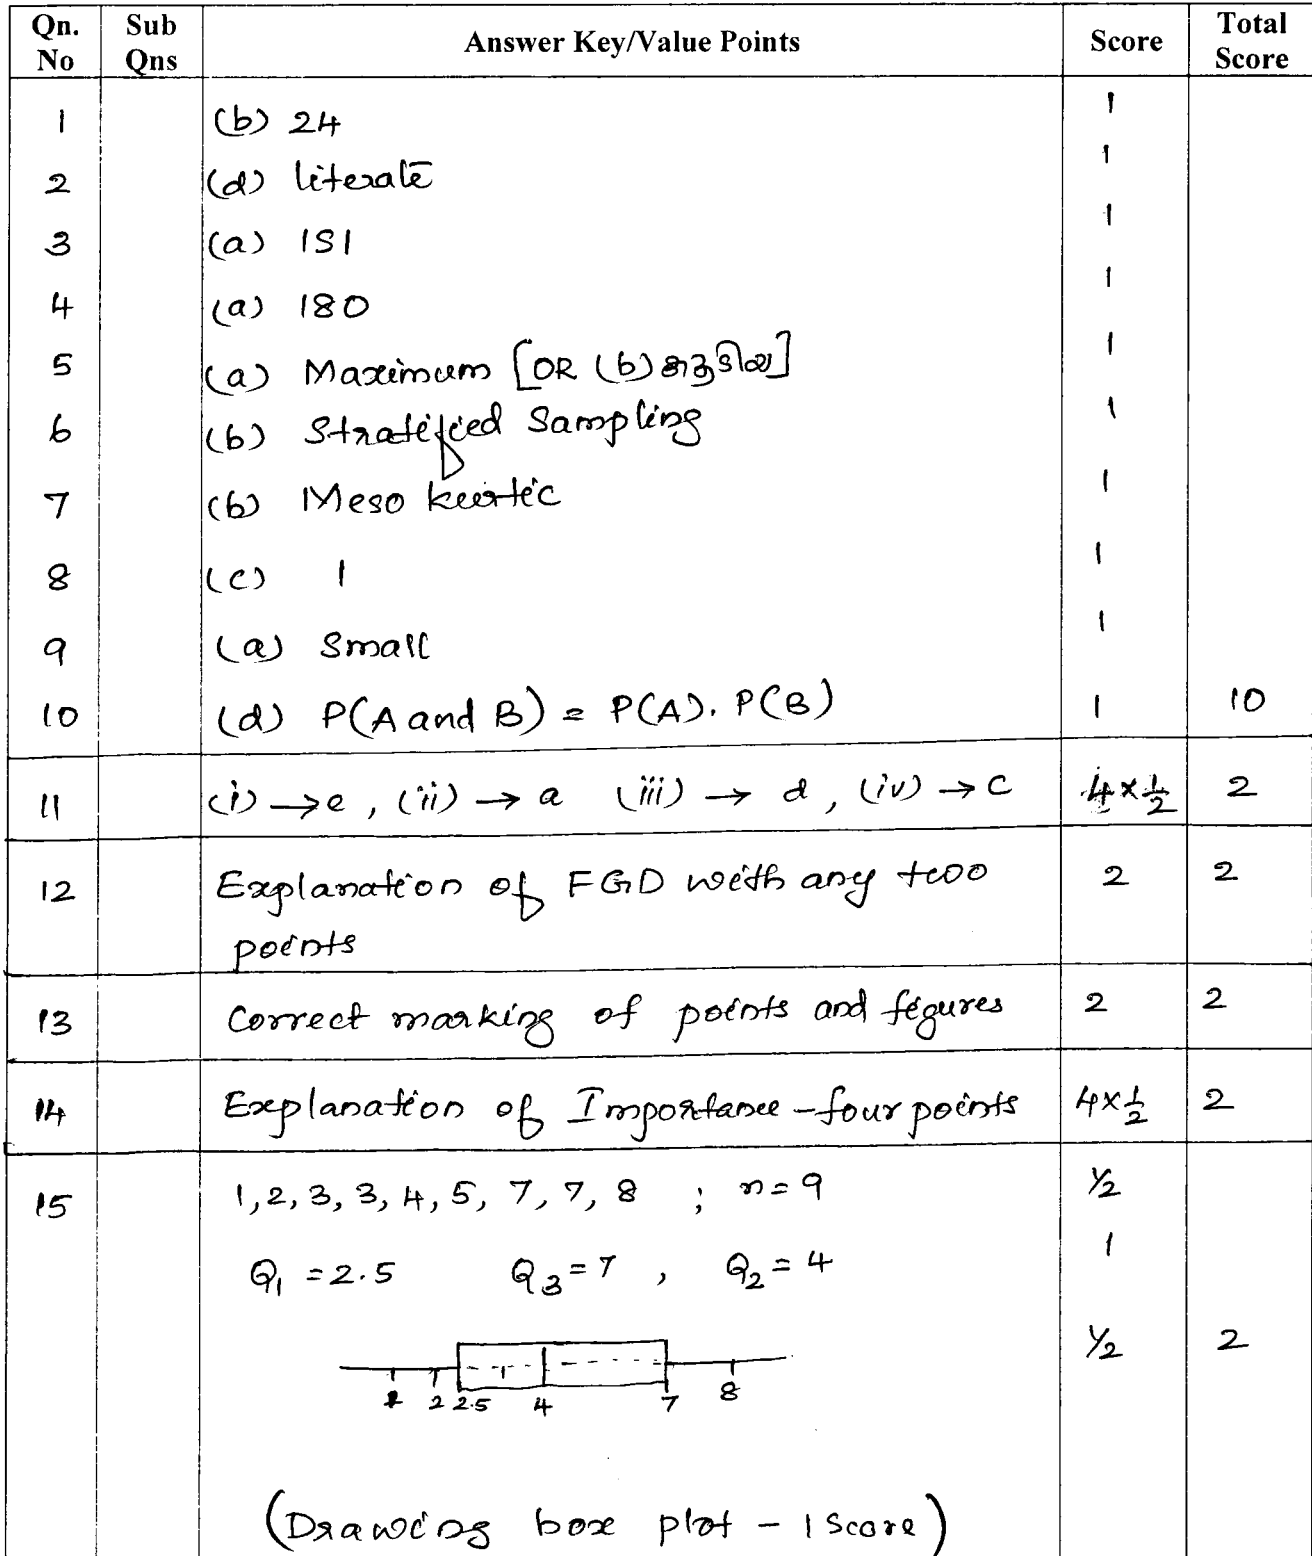 Qn. No Sub Qns Answer Key/Value Points Score Total Score
1 (b) 24 1
2 (d) literate 1
3 (a) ISI 1
4 (a) 180 1
5 (a) Maximum [OR (b) ] 1
6 (b) Stratified Sampling 1
7 (b) Meso kurtic 1
8 (c) 1 1
9 (a) Small 1
10 (d) P(A and B) = P(A). P(B) 1 10
11 (i) → e, (ii) → a (iii) → d, (iv) → c 4×½ 2
12 Explanation of FGD with any two 2 2
points
13 Correct marking of points and figures 2 2
14 Explanation of Importance - four points 4×½ 2
15 1, 2, 3, 3, 4, 5, 7, 7, 8 ; n=9 ½
Q₁ = 2.5 Q₃ = 7 , Q₂ = 4 1
½ 2
1 2 2.5 4 7 8
(Drawing box plot - 1 Score)